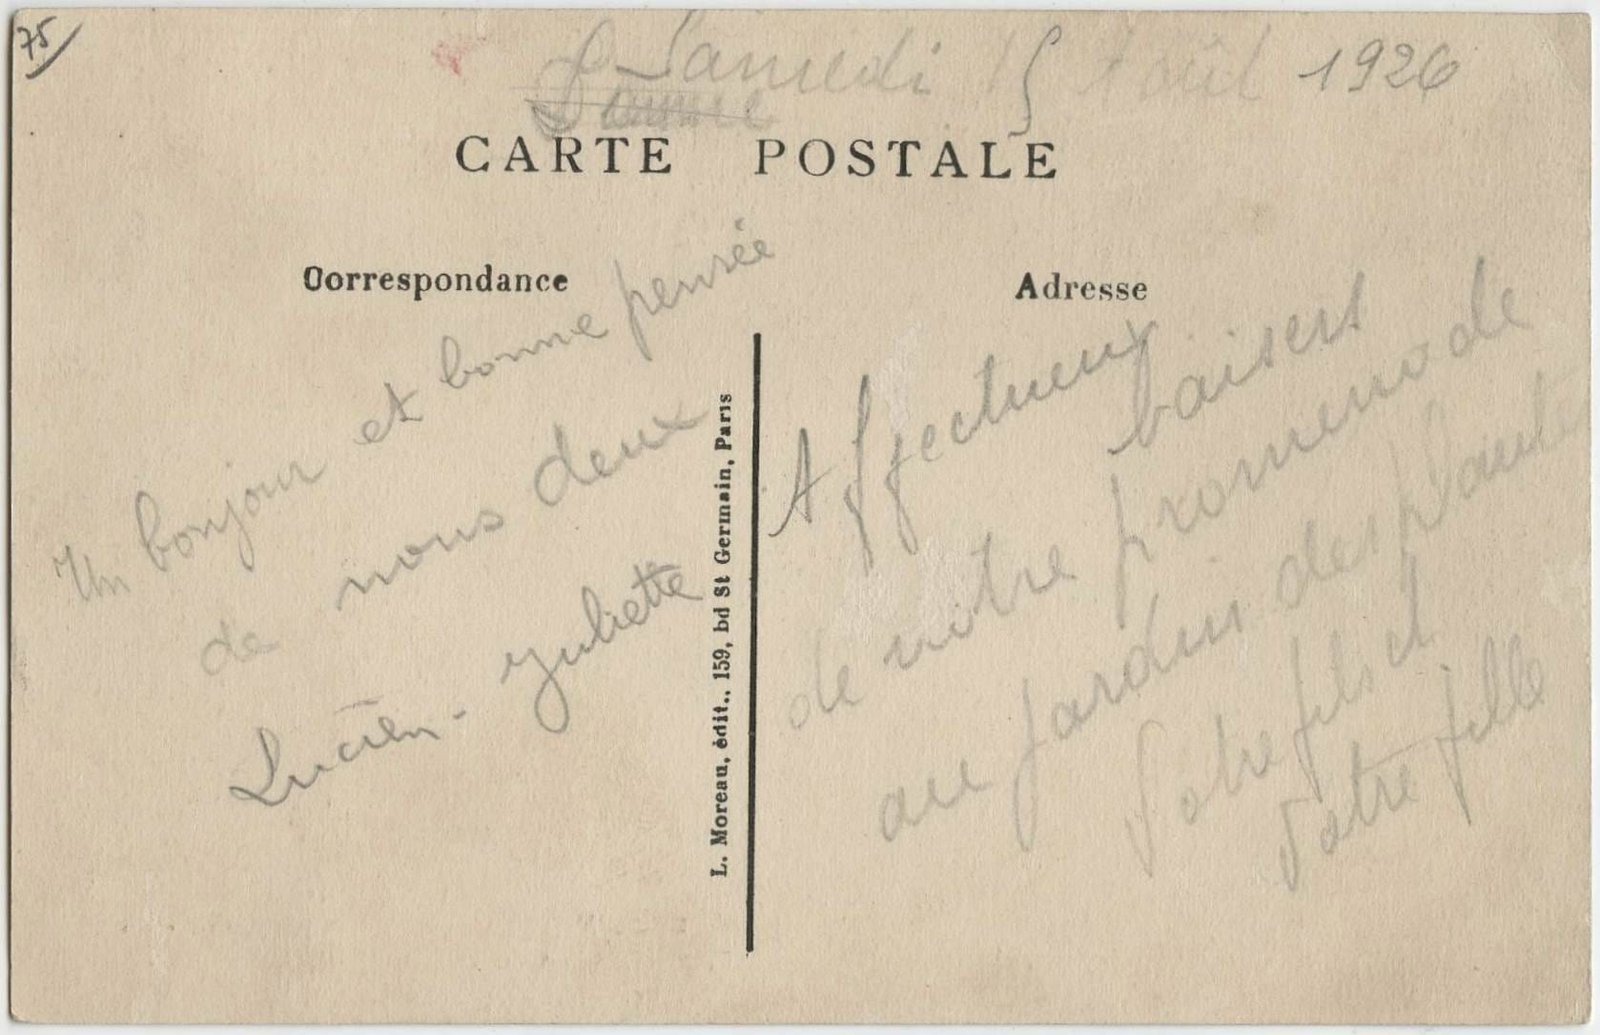 75
Samedi 15 Août 1926
CARTE POSTALE
Correspondance
Adresse
Un bonjour et bonne pensée
de nous deux
Lucien - Juliette
L. Moreau, édit., 159, bd St Germain, Paris
Affectueux
baisers
de notre promenade
au jardin des plantes
Votre fils et
Votre fille